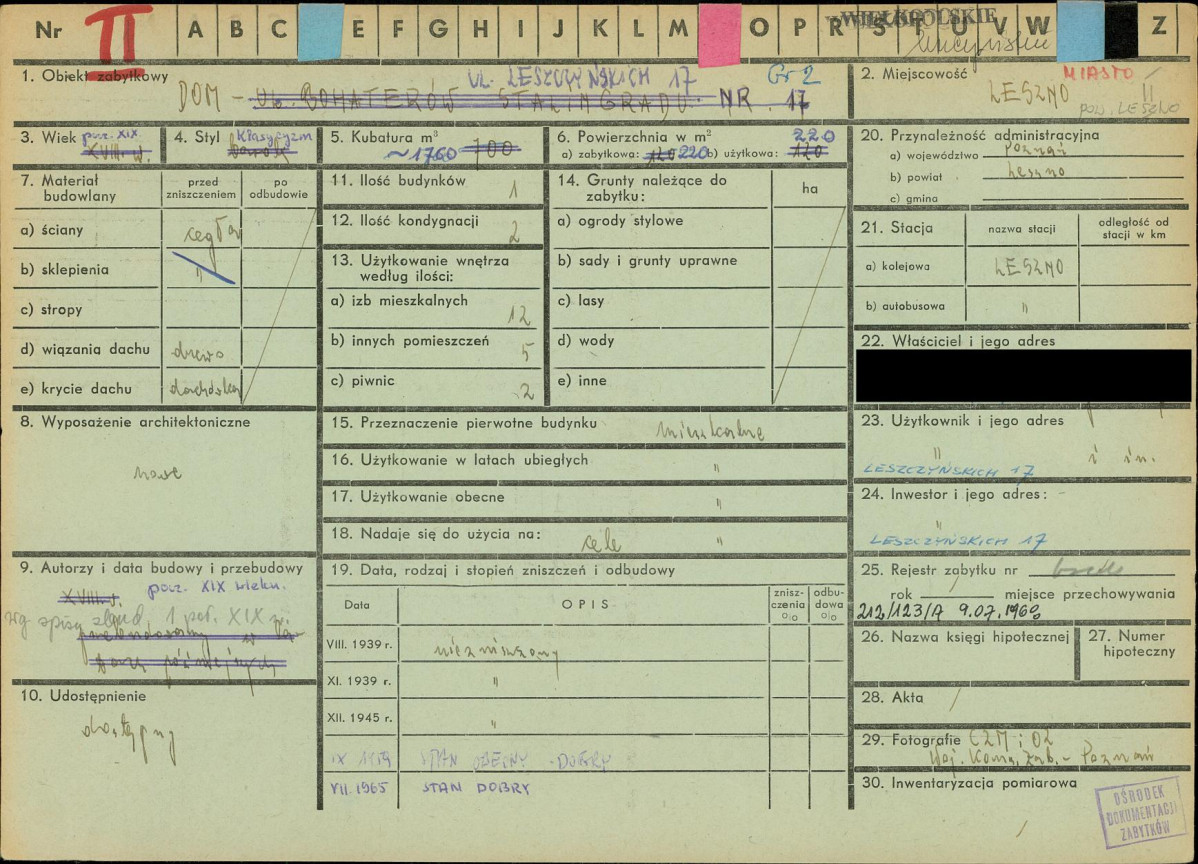 Nr II A B C E F G H I J K L M O P R S T U V W Z
WIELKOPOLSKIE
1. Obiekt zabytkowy
UL. LESZCZYŃSKICH 17 Gr 2
DOM – UL. BOHATERÓW STALINGRADU NR. 17
2. Miejscowość MIASTO
LESZNO
POW. LESZNO
3. Wiek pocz. XIX.
XVIII. w.
4. Styl Klasycyzm
barok
5. Kubatura m³
~1760 700
6. Powierzchnia w m² 220
a) zabytkowa: 120 220 b) użytkowa: 120
7. Materiał budowlany
przed zniszczeniem
po odbudowie
a) ściany cegła
b) sklepienia "
c) stropy
d) wiązania dachu drewno
e) krycie dachu dachówka
8. Wyposażenie architektoniczne
nowe
9. Autorzy i data budowy i przebudowy
XVIII. w. pocz. XIX wieku.
wg spisu zbiud, 1 poł. XIX w.
przebudowany w la-
tach późniejszych
10. Udostępnienie
dostępny
11. Ilość budynków 1
12. Ilość kondygnacji 2
13. Użytkowanie wnętrza według ilości:
a) izb mieszkalnych 12
b) innych pomieszczeń 5
c) piwnic 2
14. Grunty należące do zabytku:
ha
a) ogrody stylowe
b) sady i grunty uprawne
c) lasy
d) wody
e) inne
15. Przeznaczenie pierwotne budynku mieszkalne
16. Użytkowanie w latach ubiegłych "
17. Użytkowanie obecne "
18. Nadaje się do użycia na: cele "
19. Data, rodzaj i stopień zniszczeń i odbudowy
Data
OPIS
znisz-czenia %
odbu-dowa %
VIII. 1939 r. niezniszczony
XI. 1939 r. "
XII. 1945 r. "
IX 1959 STAN OBECNY - DOBRY
VII. 1965 STAN DOBRY
20. Przynależność administracyjna
a) województwo Poznań
b) powiat Leszno
c) gmina
21. Stacja
nazwa stacji
odległość od stacji w km
a) kolejowa LESZNO
b) autobusowa "
22. Właściciel i jego adres
23. Użytkownik i jego adres
" i in.
LESZCZYŃSKICH 17
24. Inwestor i jego adres:
"
LESZCZYŃSKICH 17
25. Rejestr zabytku nr
rok / miejsce przechowywania
212/123/A 9.07.1960
26. Nazwa księgi hipotecznej
27. Numer hipoteczny
28. Akta /
29. Fotografie CZM i OZ
Woj. Kons. Zab. - Poznań
30. Inwentaryzacja pomiarowa
/
OŚRODEK
DOKUMENTACJI
ZABYTKÓW